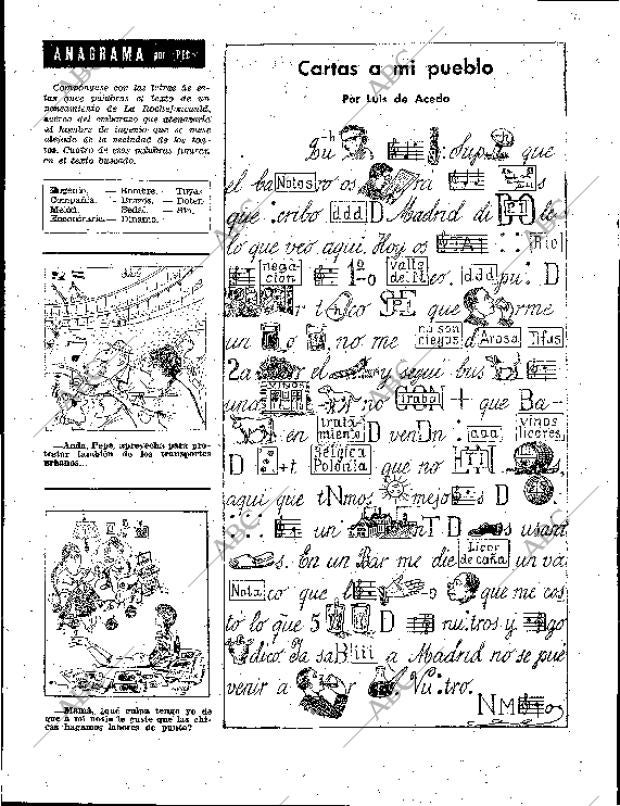 ANAGRAMA por
Compóngase con las letras de es-
tas once palabras el texto de un
pensamiento de La Rochefoucauld,
acerca del embarazo que atenazaría
al hombre de ingenio que se viese
alejado de la necedad de los ton-
tos. Cuatro de esas palabras figuran
en el texto buscado.
Eugenio. — Hombre. — Tuyas
Compañía. — Bravos. — Doten.
Melón. — Pedal. — Sin.
— Dinamo.
—Anda, Pepe, aprovecha para pro-
testar también de los transportes
urbanos...
—Mamá, ¿qué culpa tengo yo de
que a mi novio le guste que las chi-
cas hagamos labores de punto?
Cartas a mi pueblo
Por Luis de Acedo
que
el ba Notas ro os ni s
que cribo ddd D Madrid di le
lo que veo aquí. Hoy os Río
negación 1º o Valle de N eo. ddd pu D
r t co que rme
un o no me no son ciegos d Arosa Tifus
2a r el y segui bus
una VINOS no CON Traba + que Ba-
en tratamiento D venDn aaa, vinos licores
D + t Bélgica Polonia que no
aquí que tNmos mejo s D
un nT D s usant
s. En un Bar me die Licor de caña un va
Nota co que l o que me cos
tó lo que 5 D nu tros y go
dico Ya sa B!iii a Madrid no se pue
venir a r Vu tro.
NM os
ABC